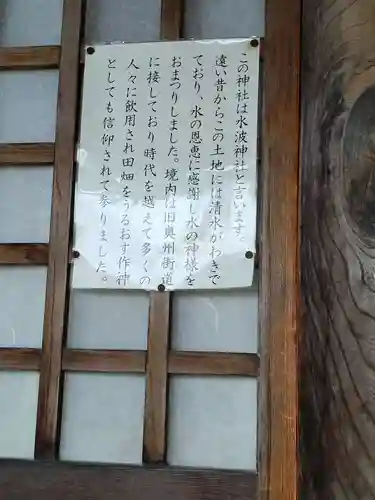 この神社は水波神社と言います。
遠い昔からこの土地には清水がわきで
ており、水の恩恵に感謝し水の神様を
おまつりしました。境内は旧奥州街道
に接しており時代を越えて多くの
人々に飲用され田畑をうるおす作神
としても信仰されて参りました。